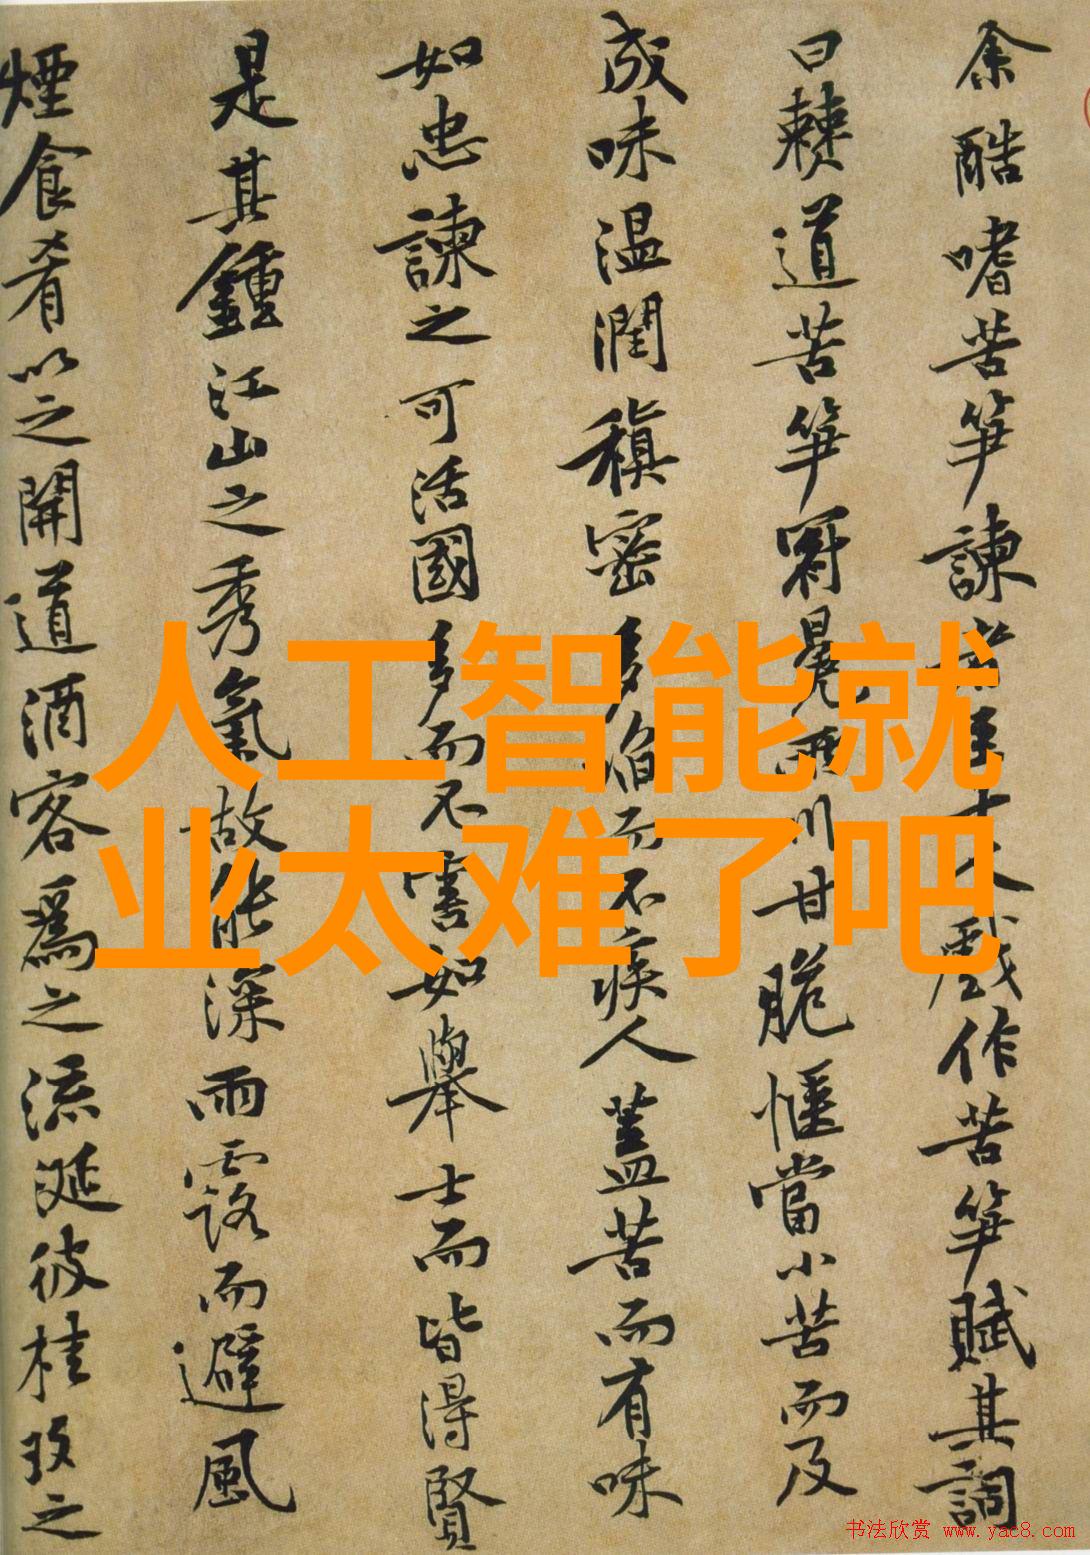 余酷嗜苦笋諫者至十人戲作苦笋賦其詞
曰僰道苦笋冠冕兩川甘脆愜當小苦而及
成味温潤稹密多啗而不疾人蓋苦而有味
如忠諫之可活國多而不害如舉士而皆得賢
是其鍾江山之秀氣故能深雨露而避風
煙食肴以之開道酒客爲之流涎彼桂玫之
人工智能就
业太难了吧
书法欣赏 www.yac8.com